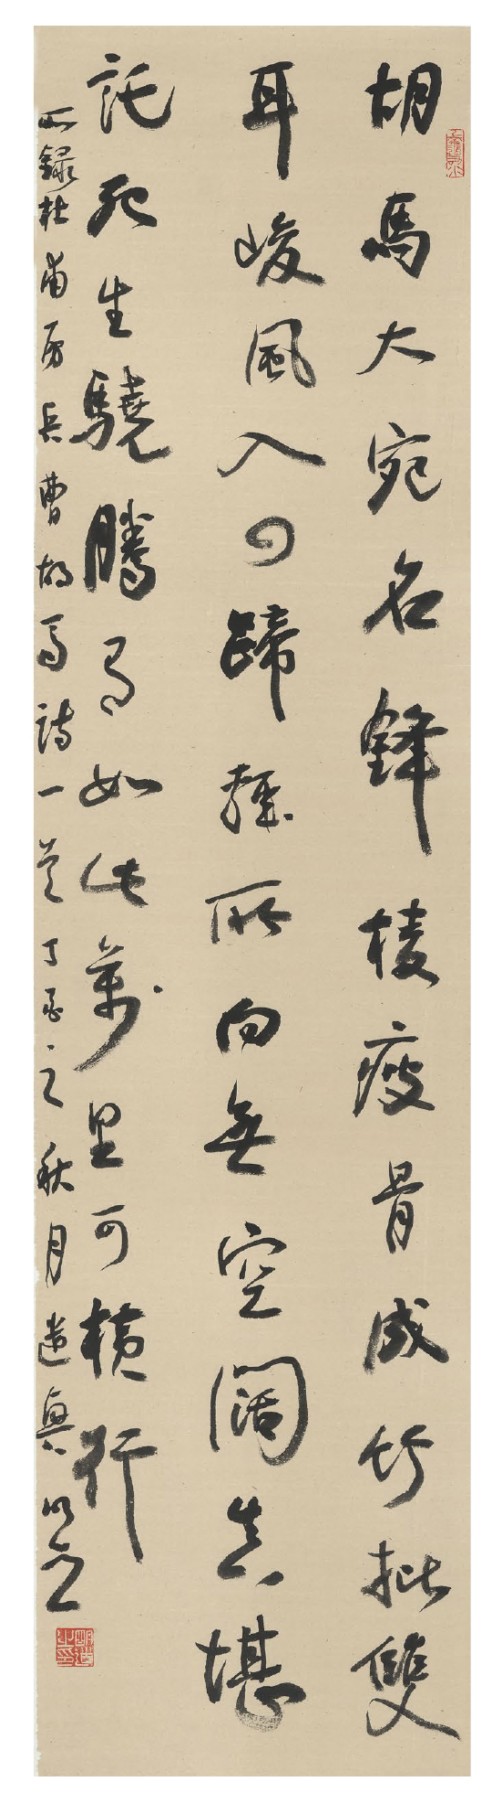 胡馬大宛名鋒棱瘦骨成竹批雙
耳峻風入四蹄輕所向無空闊真堪
託死生驍騰有如此萬里可橫行
右錄杜甫房兵曹胡馬詩一首丁酉之秋月遣興